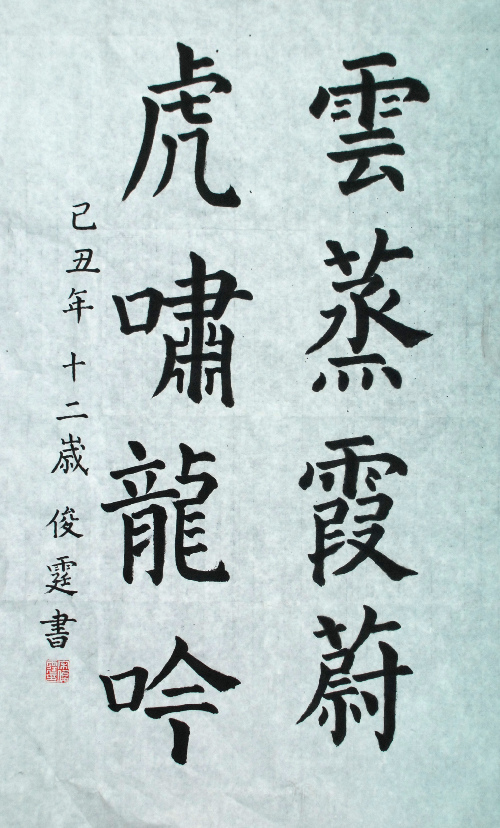 雲蒸霞蔚
虎嘯龍吟
己丑年 十二歲 俊霆書